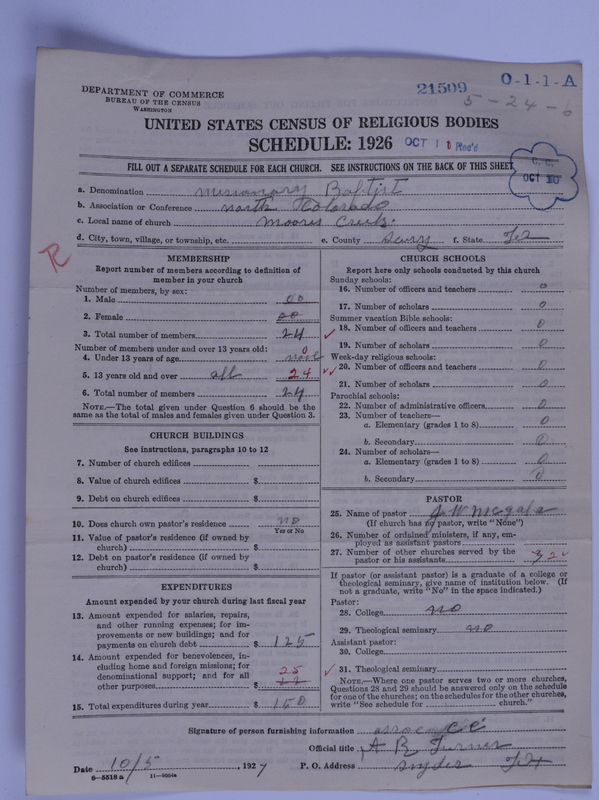 21509
O-1-1-A
5-24-6
DEPARTMENT OF COMMERCE
BUREAU OF THE CENSUS
WASHINGTON
UNITED STATES CENSUS OF RELIGIOUS BODIES
SCHEDULE: 1926
OCT 1 Rec'd
FILL OUT A SEPARATE SCHEDULE FOR EACH CHURCH. SEE INSTRUCTIONS ON THE BACK OF THIS SHEET
OCT 10
a. Denomination Missionary Baptist
b. Association or Conference North Colorado
c. Local name of church Moores Creek
d. City, town, village, or township, etc. e. County Scurry f. State Tex
R
MEMBERSHIP
Report number of members according to definition of
member in your church
Number of members, by sex:
1. Male 00
2. Female 00
3. Total number of members 24
Number of members under and over 13 years old:
4. Under 13 years of age none 0
5. 13 years old and over all 24
6. Total number of members 24
NOTE.—The total given under Question 6 should be the
same as the total of males and females given under Question 3.
CHURCH BUILDINGS
See instructions, paragraphs 10 to 12
7. Number of church edifices
8. Value of church edifices $
9. Debt on church edifices $
10. Does church own pastor's residence no
Yes or No
11. Value of pastor's residence (if owned by
church) $
12. Debt on pastor's residence (if owned by
church) $
EXPENDITURES
Amount expended by your church during last fiscal year
13. Amount expended for salaries, repairs,
and other running expenses; for im-
provements or new buildings; and for
payments on church debt $ 125
14. Amount expended for benevolences, in-
cluding home and foreign missions; for
denominational support; and for all
other purposes $ 25
15. Total expenditures during year $ 150
CHURCH SCHOOLS
Report here only schools conducted by this church
Sunday schools:
16. Number of officers and teachers 0
17. Number of scholars 0
Summer vacation Bible schools:
18. Number of officers and teachers 0
19. Number of scholars 0
Week-day religious schools:
20. Number of officers and teachers 0
21. Number of scholars 0
Parochial schools:
22. Number of administrative officers 0
23. Number of teachers—
a. Elementary (grades 1 to 8) 0
b. Secondary 0
24. Number of scholars—
a. Elementary (grades 1 to 8) 0
b. Secondary 0
PASTOR
25. Name of pastor J W
(If church has no pastor, write "None")
26. Number of ordained ministers, if any, em-
ployed as assistant pastors
27. Number of other churches served by the
pastor or his assistants
If pastor (or assistant pastor) is a graduate of a college or
theological seminary, give name of institution below. (If
not a graduate, write "No" in the space indicated.)
Pastor:
28. College no
29. Theological seminary no
Assistant pastor:
30. College
31. Theological seminary
NOTE.—Where one pastor serves two or more churches,
Questions 28 and 29 should be answered only on the schedule
for one of the churches; on the schedules for the other churches,
write "See schedule for church."
Signature of person furnishing information
Official title A R Turner
Date 10/5, 1927 P. O. Address Snyder Tex
8-5518a 11-9094a